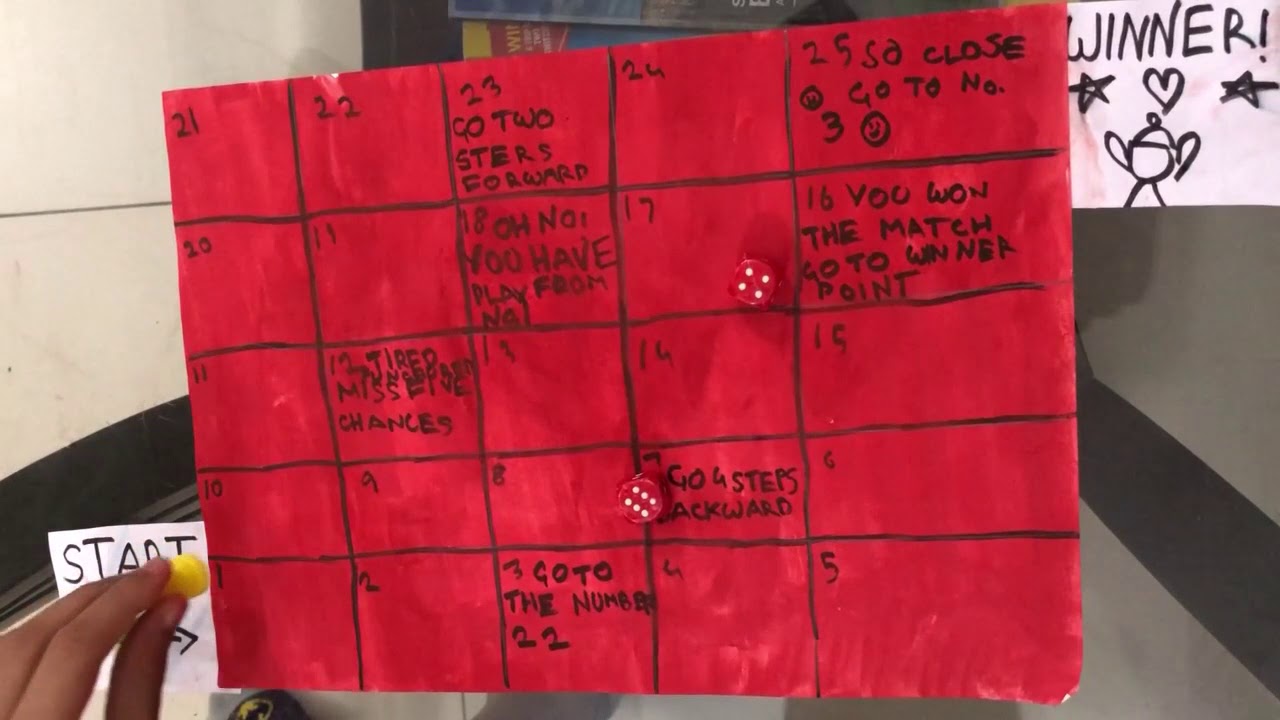 WINNER!
21
22
23
GO TWO
STERS
FORWARD
24
25 SO CLOSE
GO TO NO.
3
20
19
18 OH NO!
YOU HAVE
PLAY FROM
NO1
17
16 YOU WON
THE MATCH
GO TO WINNER
POINT
11
12 TIRED
MISS FIVE
CHANCES
13
14
15
10
9
8
7
GO 4 STEPS
BACKWARD
6
START
1
2
3 GO TO
THE NUMBER
22
4
5